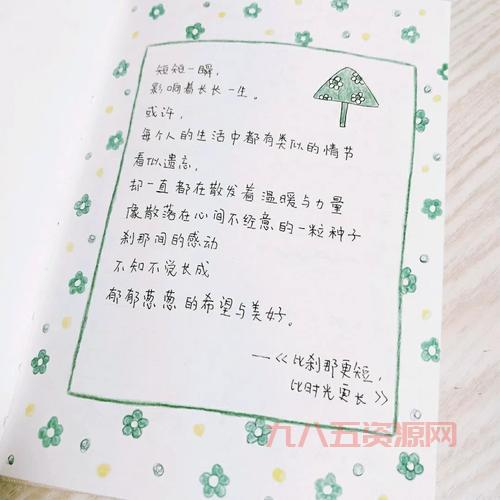 短短一瞬，
影响着长长一生。
或许，
每个人的生活中都有类似的情节
看似遗忘，
却一直都在散发着温暖与力量
像散落在心间不经意的一粒种子
刹那间的感动
不知不觉长成
郁郁葱葱的希望与美好。
——《比刹那更短，
比时光更长》
九八五资源网